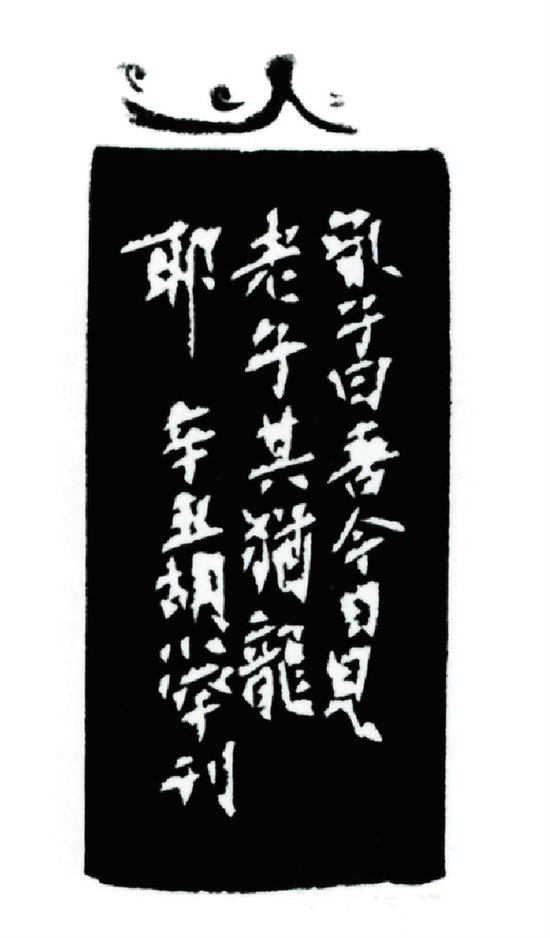 孔子曰吾今日見
老子其猶龍
耶 辛丑胡荣刊